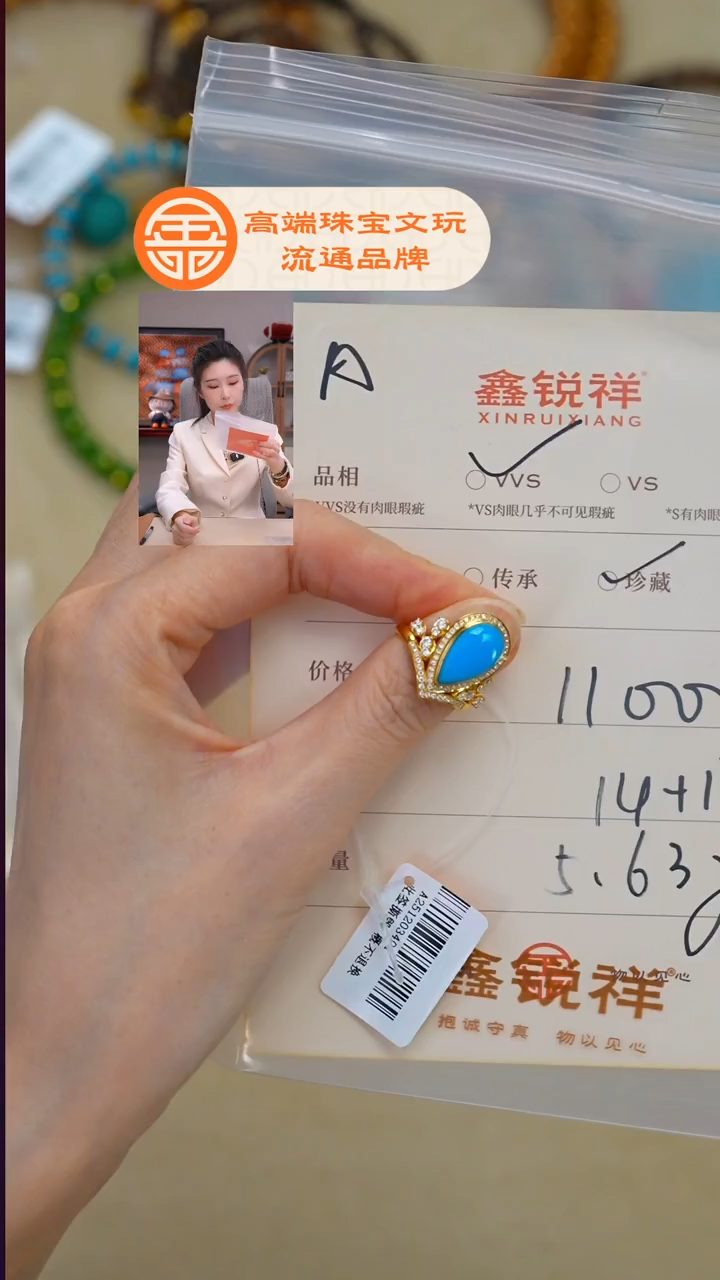 高端珠宝文玩
流通品牌
A
鑫锐祥
XINRUIXIANG
品相
VVS
VS
VVS没有肉眼瑕疵
*VS肉眼几乎不可见瑕疵
*S有肉眼
传承
珍藏
价格
1100
14+1
量
5.63g
鑫锐祥
抱诚守真 物以见心